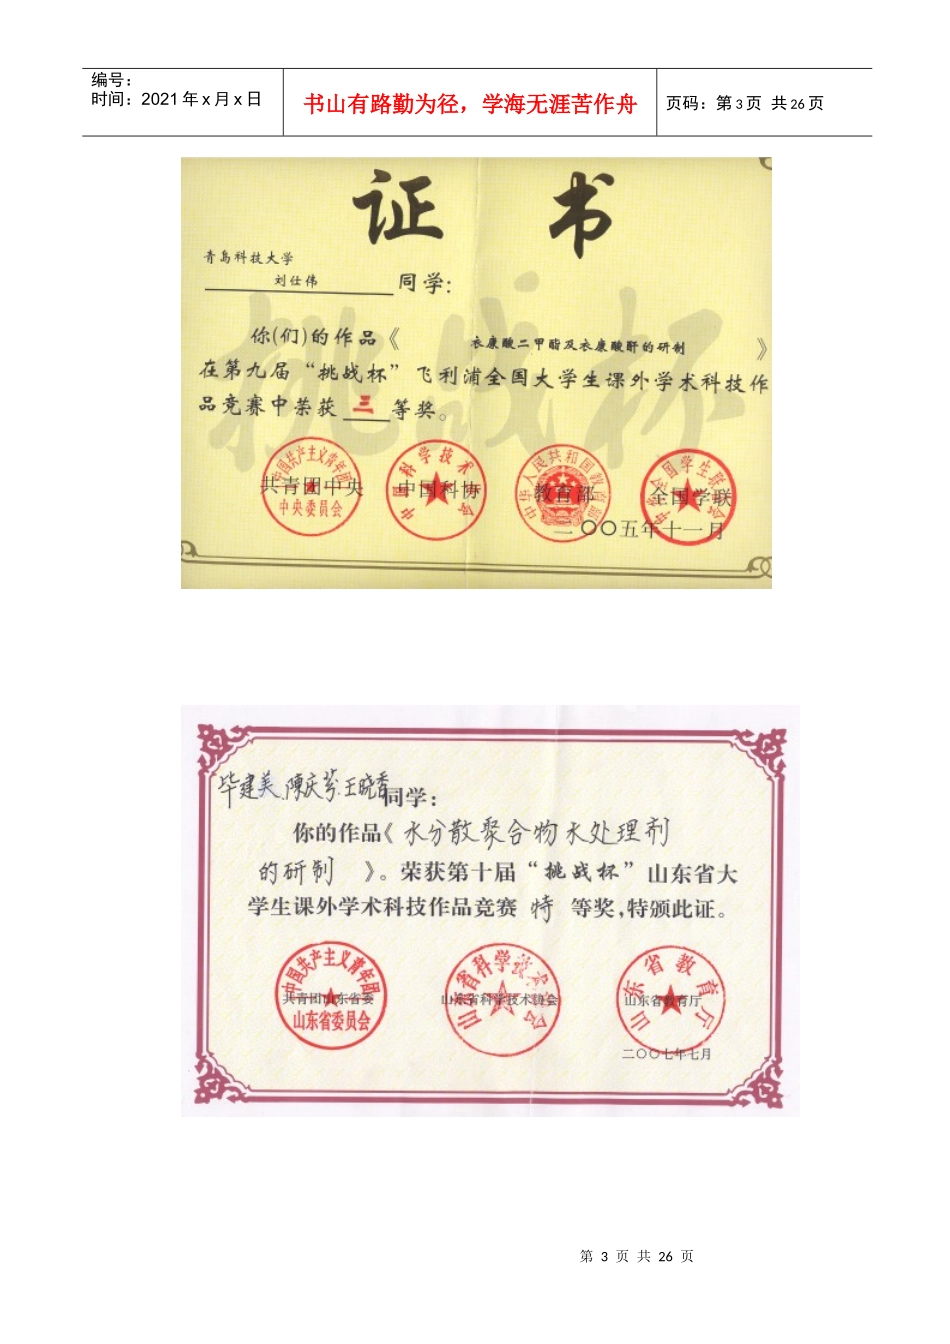 编号：
时间：2021年x月x日
书山有路勤为径，学海无涯苦作舟
页码：第3页 共26页
证 书
青岛科技大学
刘仕伟 同学：
你(们)的作品《 衣康酸二甲酯及衣康酸酐的研制 》
在第九届“挑战杯”飞利浦全国大学生课外学术科技作
品竞赛中荣获 三 等奖。
挑战杯
中国共产主义青年团
中央委员会
共青团中央
中国科学技术协会
中国科协
中华人民共和国教育部
教育部
中华全国学生联合会
全国学联
二〇〇五年十一月
毕建美、陳庆芬、王晓香同学：
你的作品《水分散聚合物水处理剂
的研制 》。荣获第十届“挑战杯”山东省大
学生课外学术科技作品竞赛 特 等奖，特颁此证。
中国共产主义青年团
山东省委员会
共青团山东省委
山东省科学技术协会
山东省科学技术协会
山东省教育厅
山东省教育厅
二〇〇七年七月
第 3 页 共 26 页